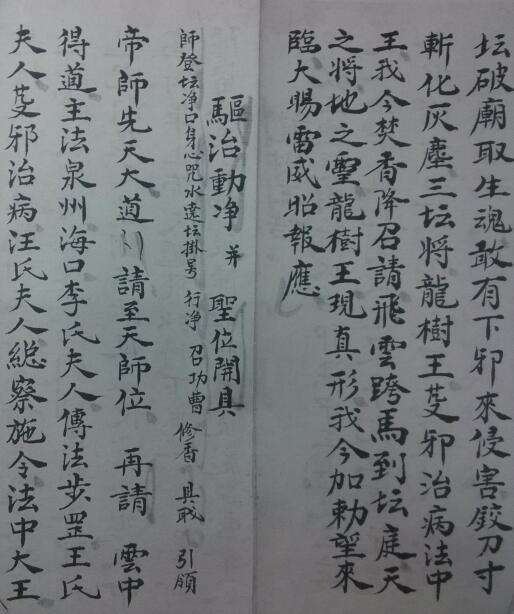 坛破廟取生魂敢有下邪來侵害鉸刀寸
斬化灰塵三坛将龍樹王芟邪治病法中
王我今焚香降召請飛雲跨馬到坛庭天
之将地之靈龍樹王現真形我今加勅望來
臨大賜雷威昭報應
驅治動净并 聖位開具
師登坛净口身心咒水遶坛掛号 行净 召功曹 修香 具職 引願
帝師先天大道 請至天師位 再請 雲中
得道主法泉州海口李氏夫人傳法步罡王氏
夫人芟邪治病汪氏夫人総察施令法中大王